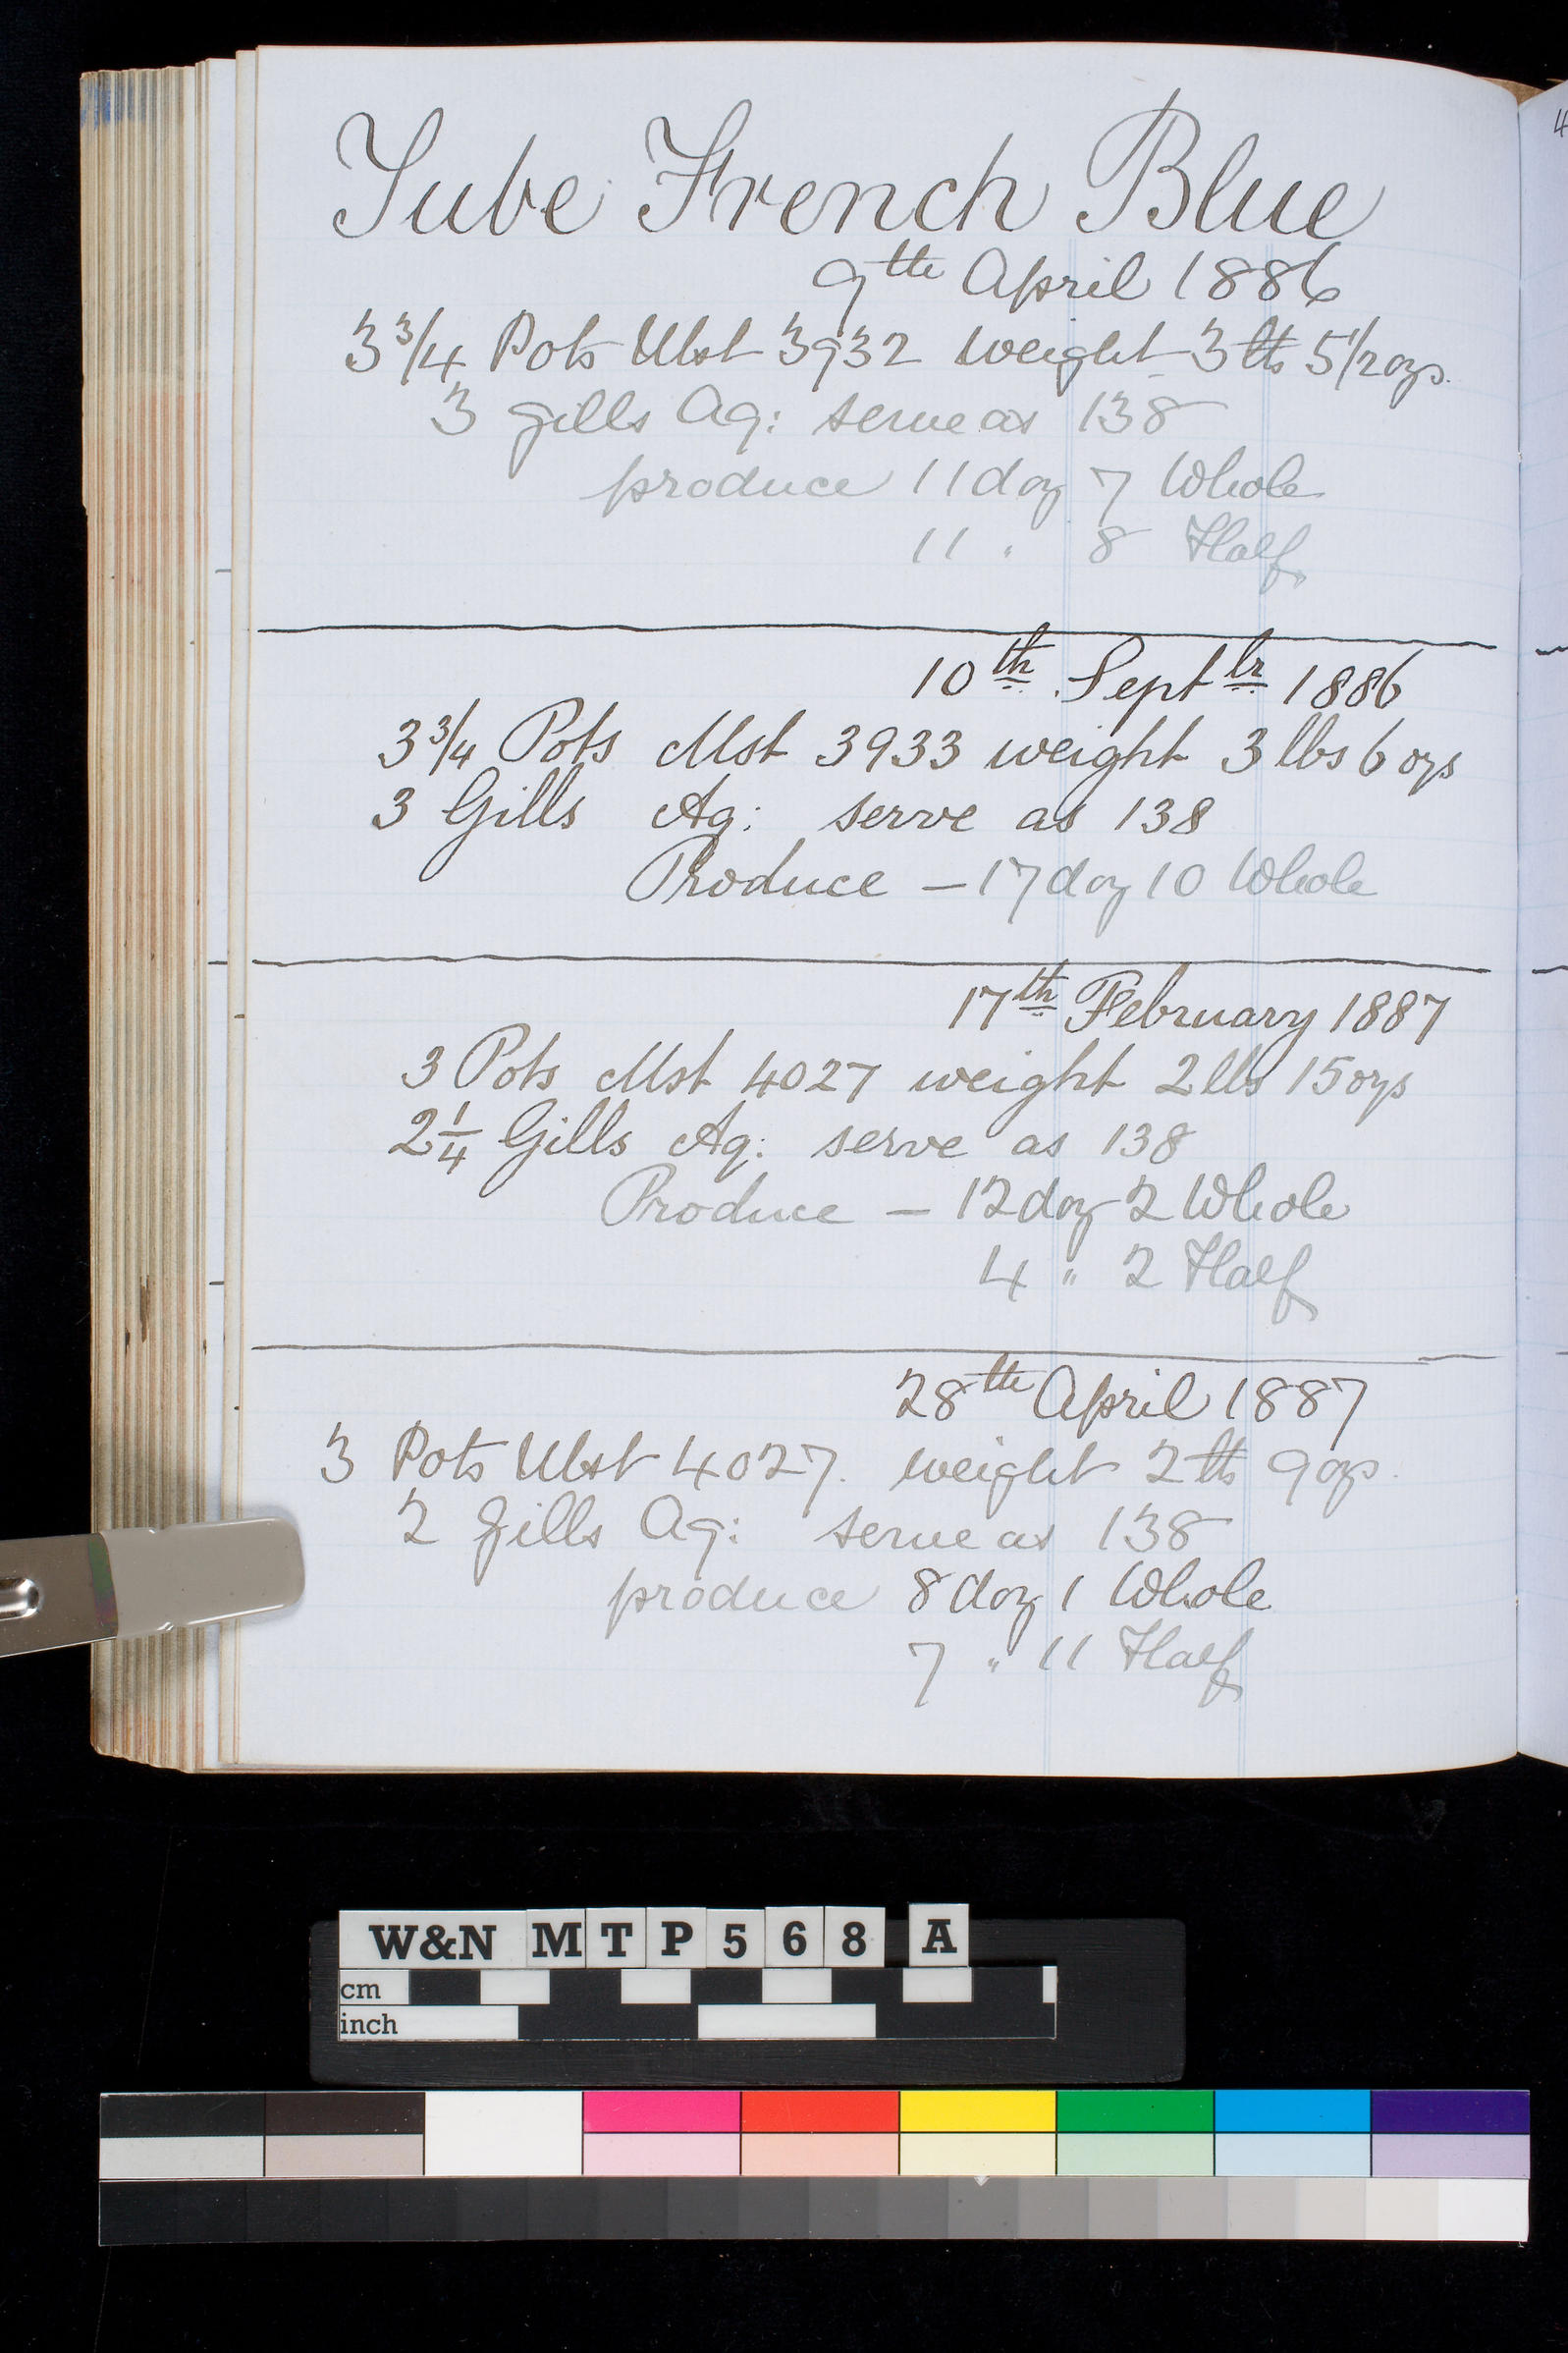 Tube French Blue
9th April 1886
3 3/4 Pots Mst 3932 weight 3 lbs 5 1/2 ozs
3 gills Aq: serve as 138
produce 11 doz 7 Whole
11 " 8 Half
10th Septbr 1886
3 3/4 Pots Mst 3933 weight 3 lbs 6 ozs
3 Gills Aq: serve as 138
Produce — 17 doz 10 Whole
17th February 1887
3 Pots Mst 4027 weight 2 lbs 15 ozs
2 1/4 Gills Aq: serve as 138
Produce — 12 doz 2 Whole
4 " 2 Half
28th April 1887
3 Pots Mst 4027. weight 2 lbs 9 ozs.
2 gills Aq: serve as 138
produce 8 doz 1 Whole
7 " 11 Half
W&N MTP568 A
cm
inch